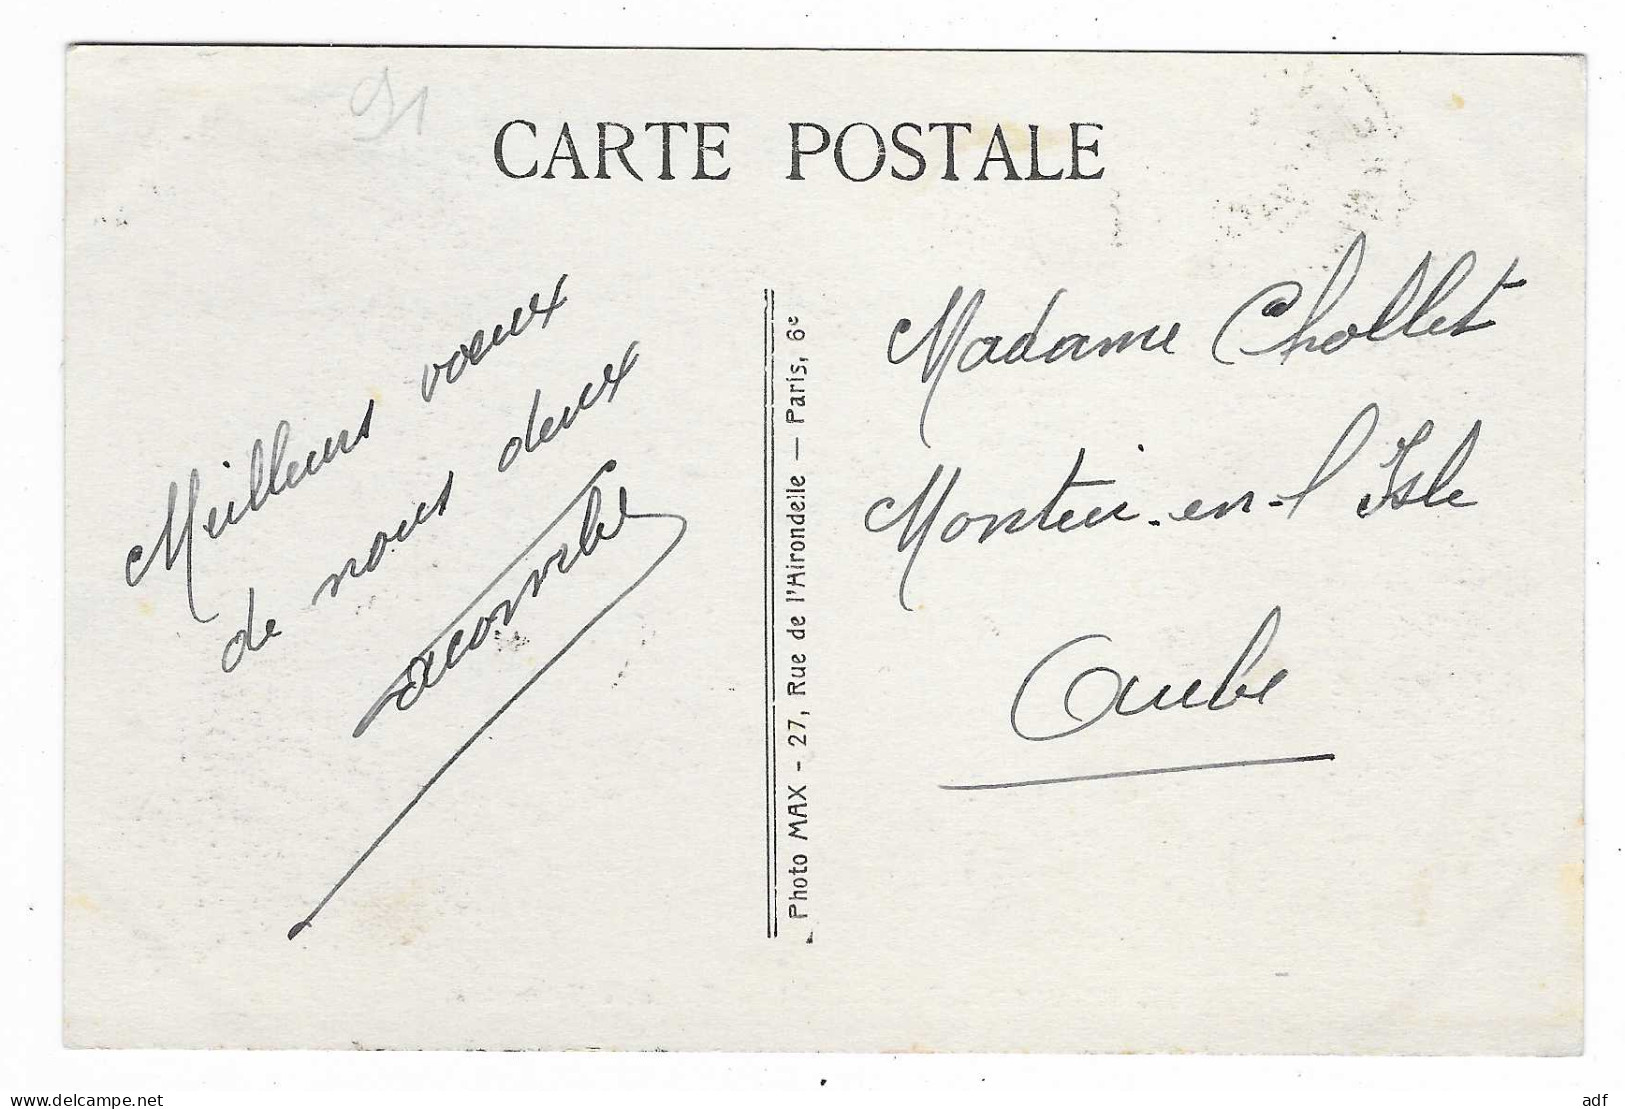 91
CARTE POSTALE
Meilleurs vœux
de nous deux
Lacombe
Photo MAX - 27, Rue de l'Airondelle — Paris, 6e
Madame Chollet
Montier-en-l'Isle
Aube
www.delcampe.net
adf